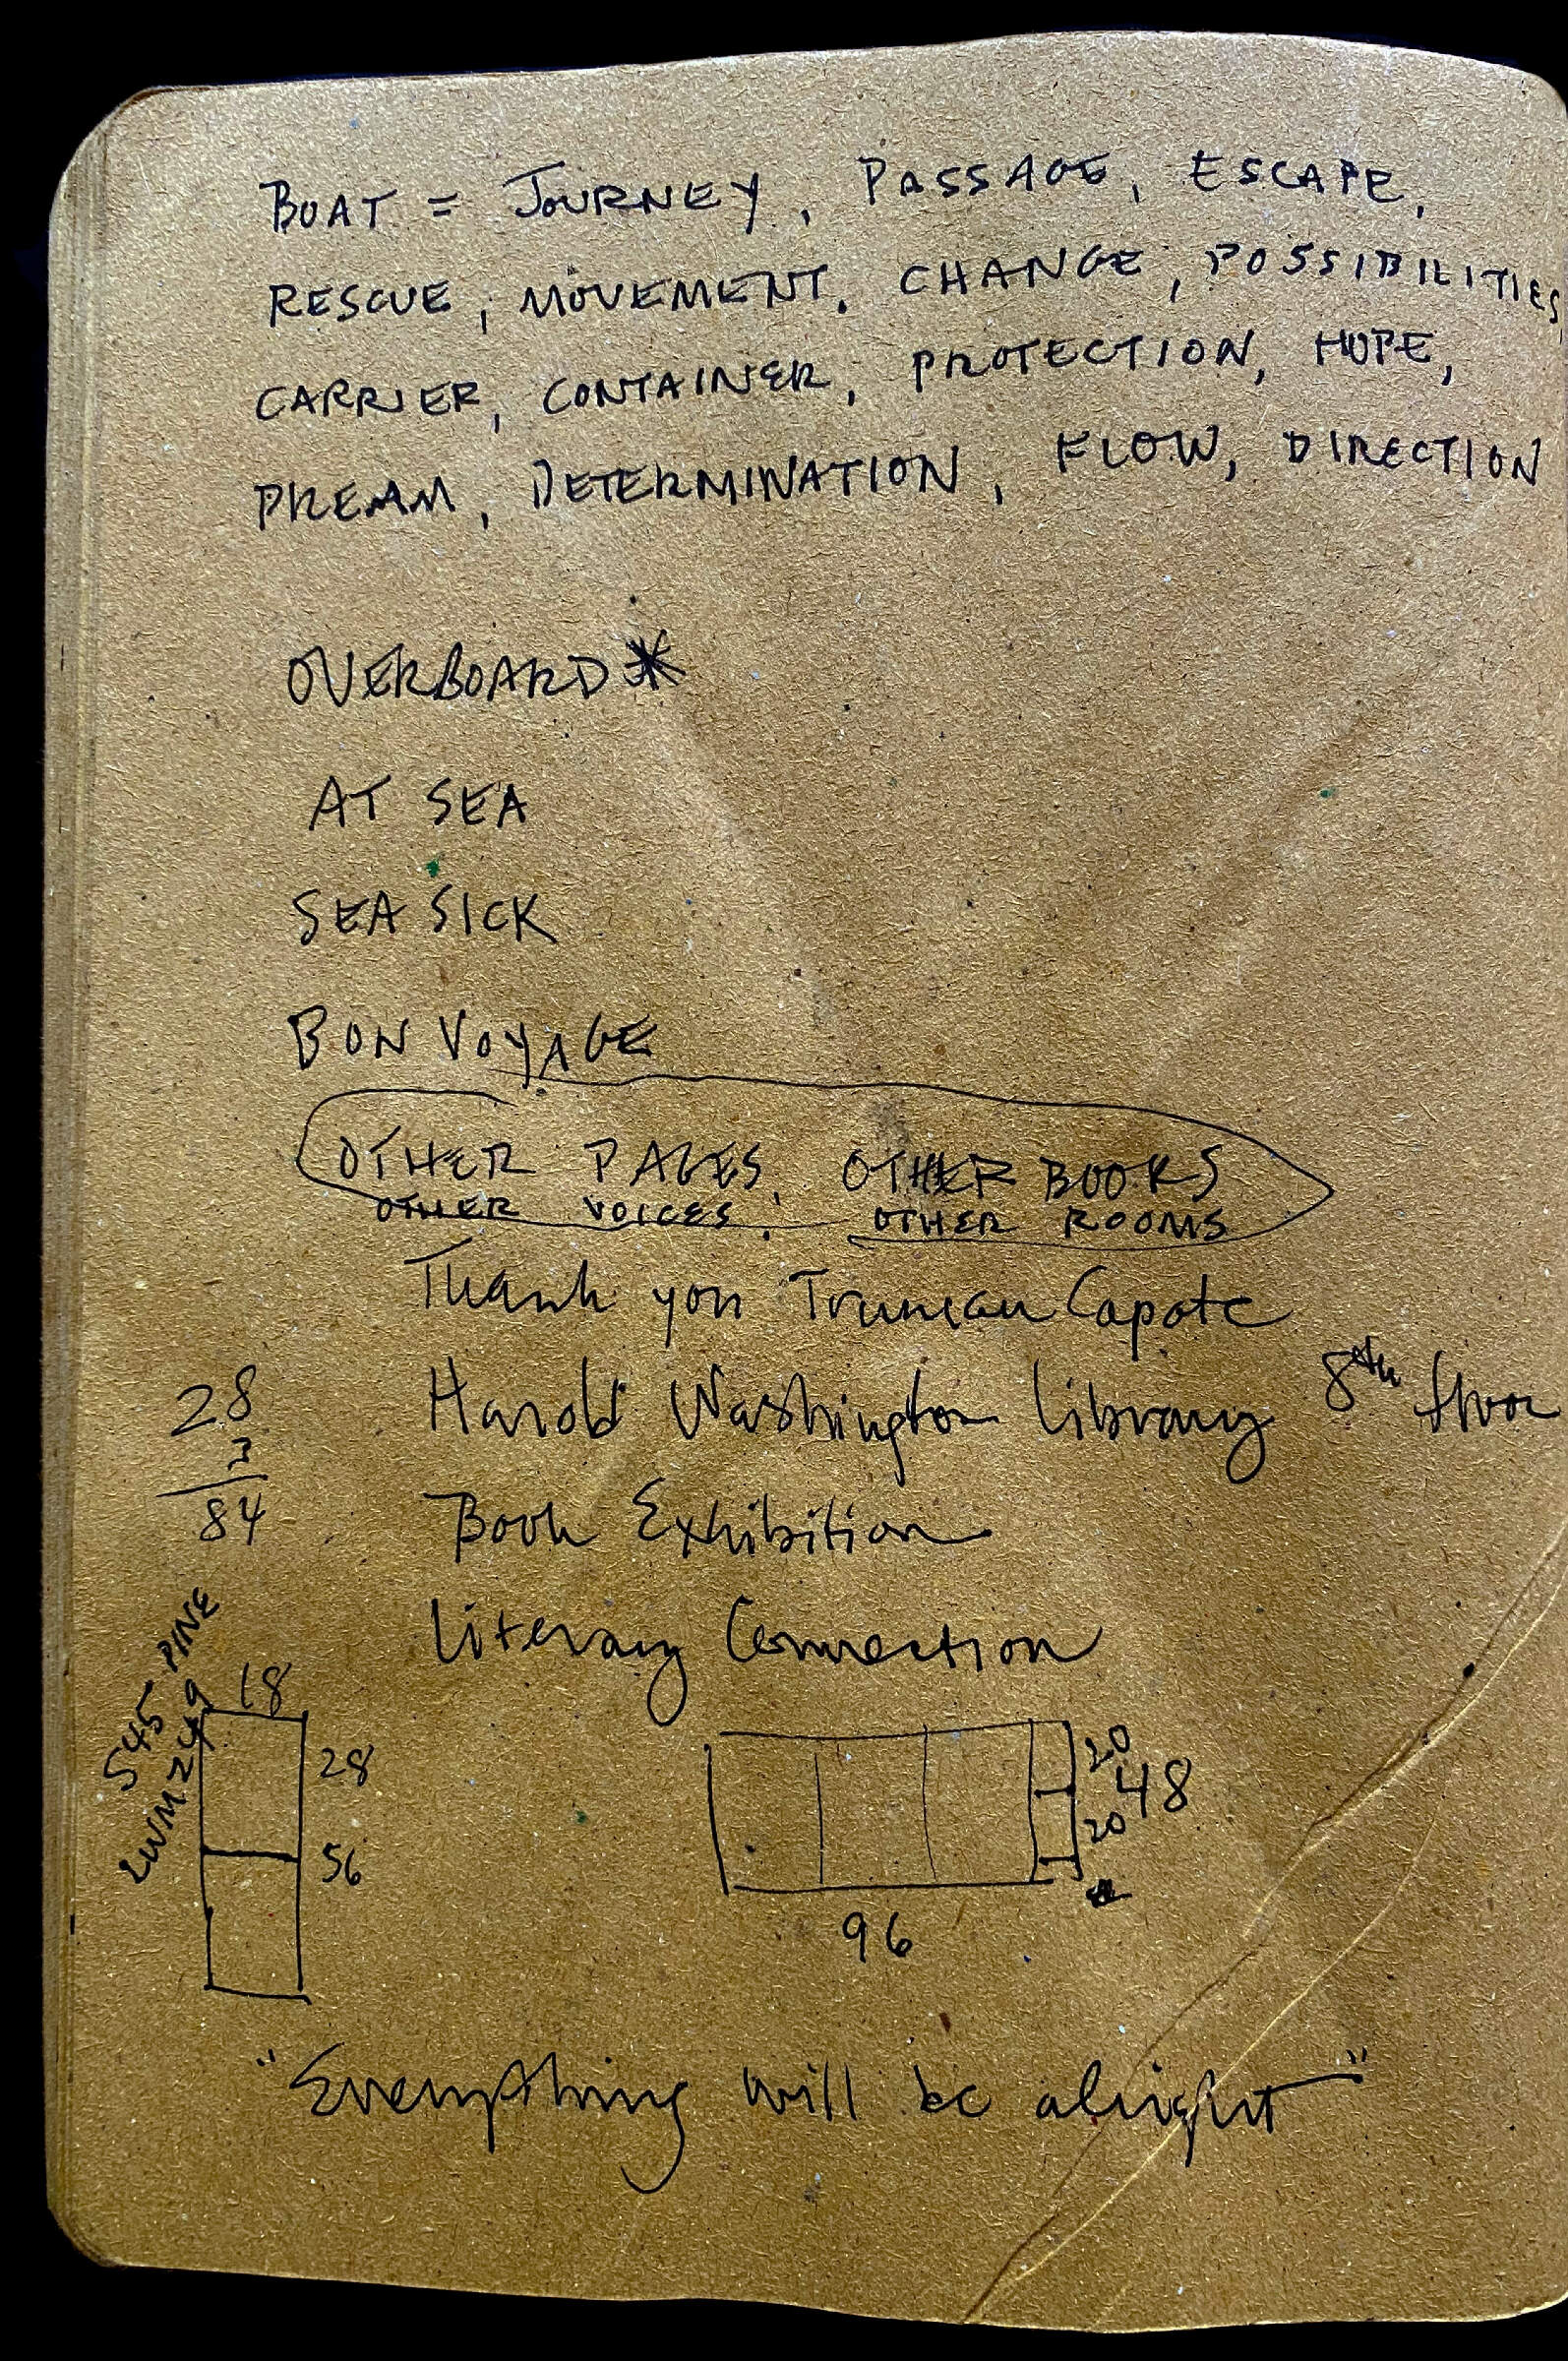 BOAT = JOURNEY, PASSAGE, ESCAPE,
RESCUE, MOVEMENT, CHANGE, POSSIBILITIES,
CARRIER, CONTAINER, PROTECTION, HOPE,
DREAM, DETERMINATION, FLOW, DIRECTION
OVERBOARD*
AT SEA
SEA SICK
BON VOYAGE
OTHER PAGES, OTHER BOOKS
OTHER VOICES, OTHER ROOMS
Thank you Truman Capote
Harold Washington Library 8th floor
28
3
84
Book Exhibition
Literary Connection
545 PINE
18
28
56
20
48
20
96
"Everything will be alright"